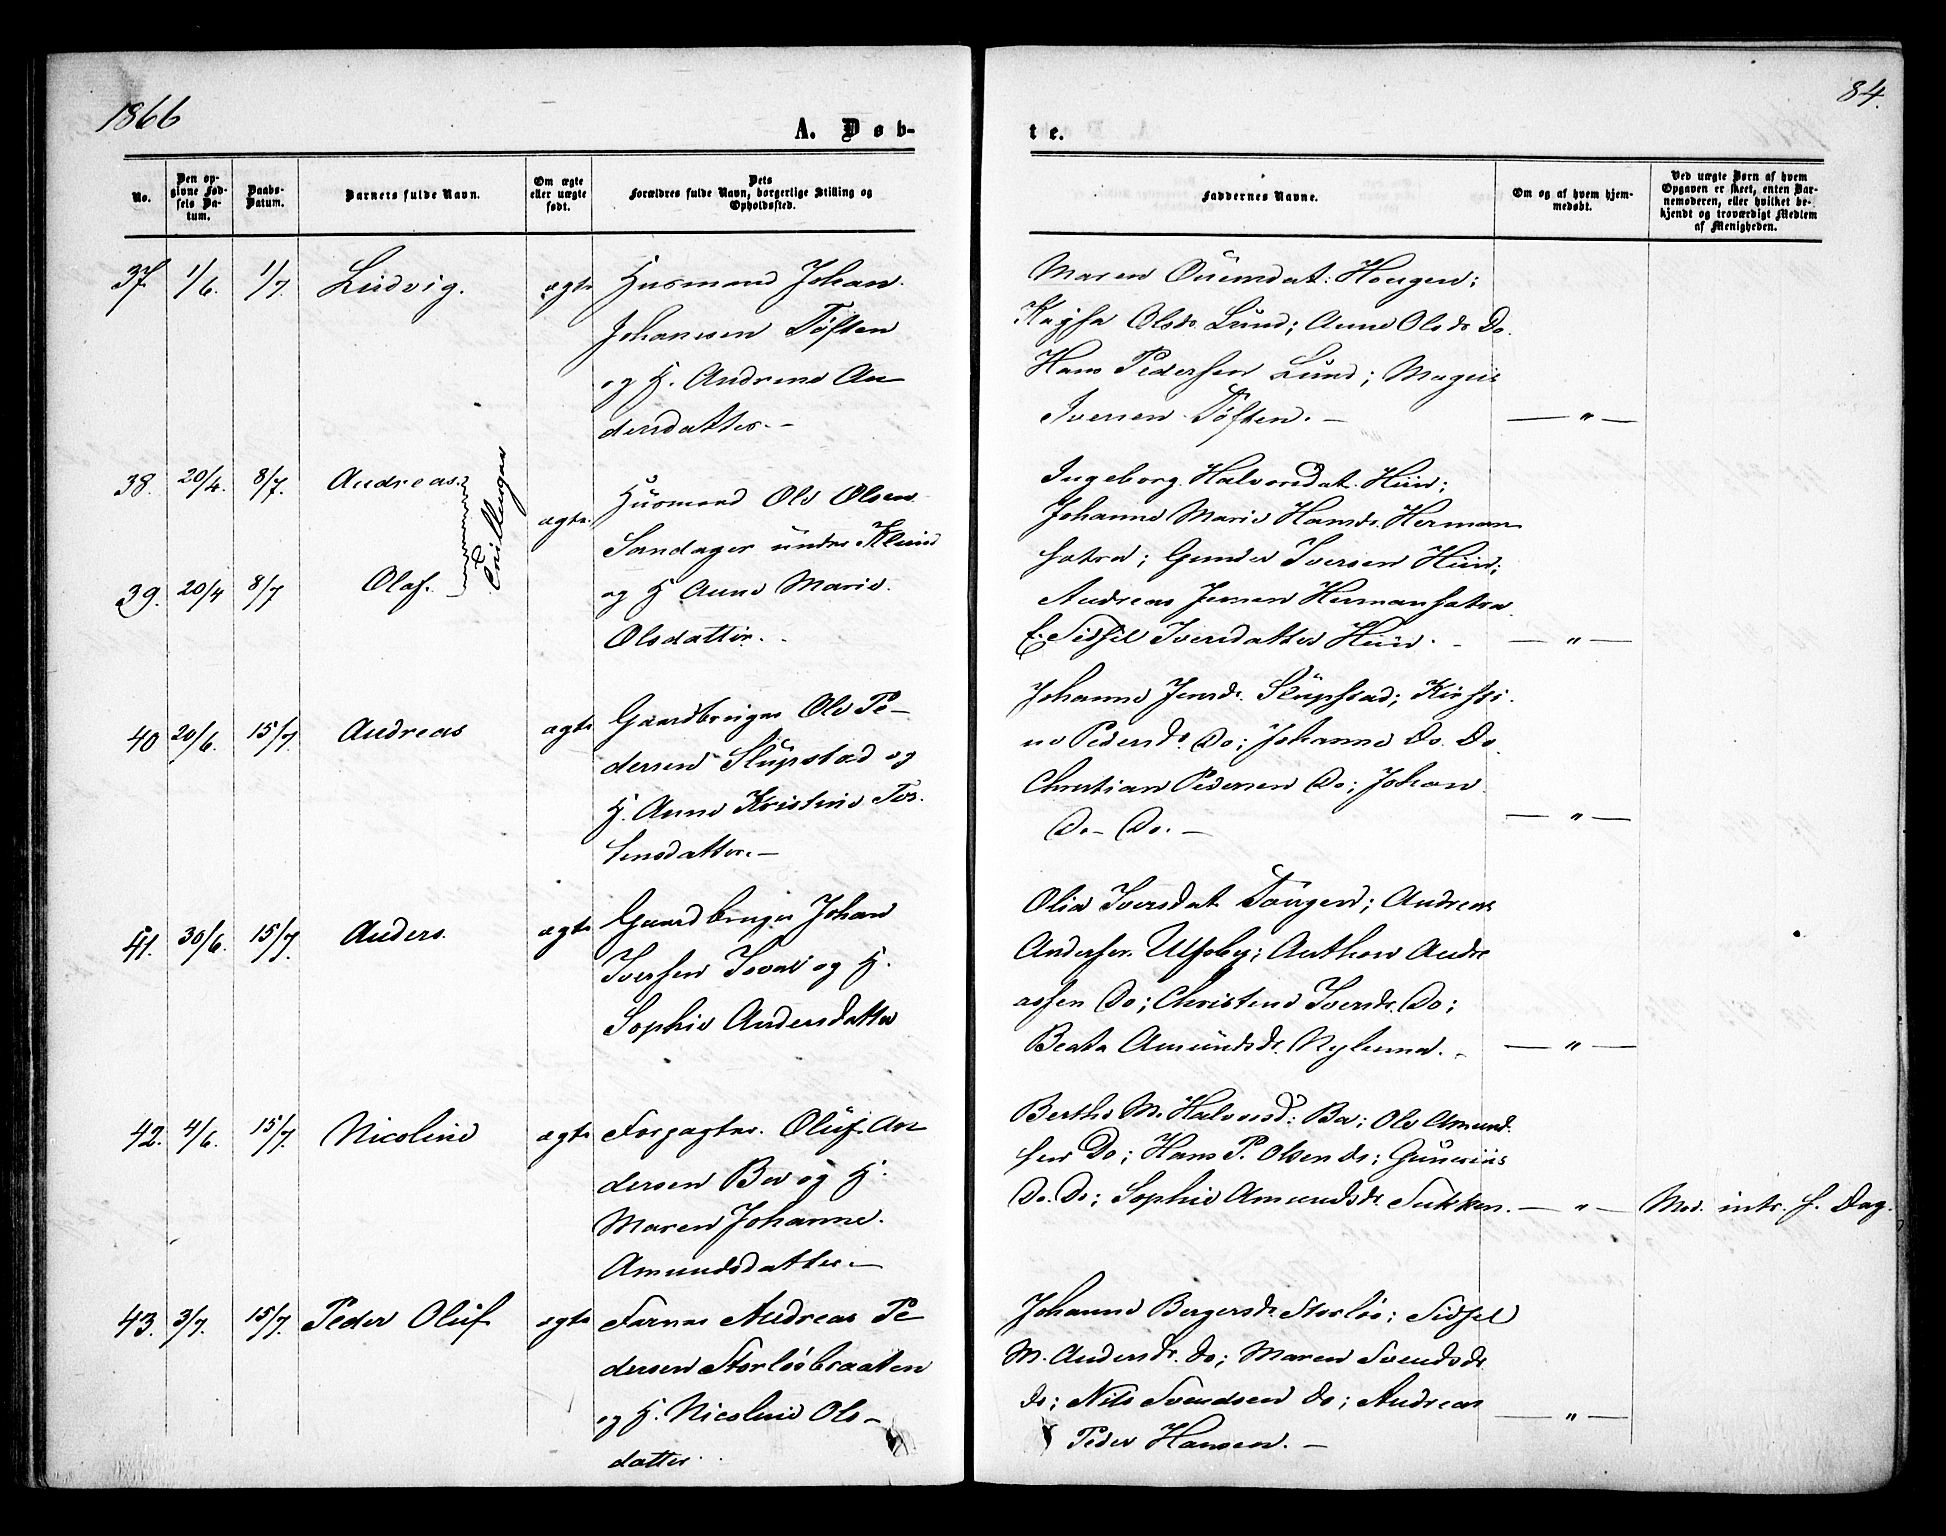 1866
84.
A. Døb-
te.
No.
Den op-
givne Fød-
sels Da-
tum.
Daabs-
Datum.
Barnets fulde Navn.
Om ægte
eller uægte
født.
Dets
Forældres fulde Navn, borgerlige Stilling og
Opholdssted.
Faddernes Navne.
Om og af hvem hjem-
medøbt.
Ved uægte Børn af hvem
Opgaven er skeet, enten Bar-
nemoderen, eller hvilket be-
kjendt og troværdigt Medlem
af Menigheden.
37. 1/6. 1/7. Ludvig. ægte Husmand Johan
Johanesen Tøften
og H. Andrine An
dersdatter. –
Maren Evensdat. Haugen;
Kajsa Olsdr. Lund; Anne Olsdr Do.
Hans Pedersen Lund; Magnus
Iversen Tøften. –
— „ —
38. 20/4. 8/7. Andreas
Tvillinger
39. 20/4 8/7 Olaf.
ægte. Husmand Ole Olsen
Sandager under Klund
og H Anne Marie
Olsdatter.
Ingeborg Halvorsdat. Huin;
Johanne Marie Hansdr. Herman
sætra; Gunder Iversen Huin;
Andreas Jensen Hermansætra
E. Sidsel Iversdatter Huin. –
— „ —
40 20/6. 15/7 Andreas ægte Gaardbruger Ole Pe-
dersen Slupstad og
H. Anne Kristine Tor-
stensdatter. –
Johanne Jensdr. Slupstad; Kirsti-
ne Pedersdr Do; Johanne Do. Do.
Christian Pedersen Do; Johan
Do – Do. –
— „ —
41. 30/6. 15/7. Anders. ægte Gaardbruger Johan
Iversen og H.
Sophie Andersdatter
Olia Iversdat. Haugen; Andreas
Andersen Ulfsby; Anthon Andre
assen Do; Christine Iversdr. Do;
Beata Amundsdr. Nylund. –
— „ —
42. 4/6. 15/7. Nicoline ægte Forpagter Oluf An
dersen Bø og H.
Maren Johanne
Amundsdatter. –
Berthe M. Halvorsd: Bø; Ole Amund-
sen Do; Hans P. Olsen do; Gunerius
Do. Do; Sophie Amundsdr. Sukken.
— „ — Mod. intr. s. Dag.
43. 3/7. 15/7. Peder Oluf ægte Forner Andreas Pe
dersen Storløsbraaten
og H. Nicoline Ols-
datter.
Johanne Bergersdr. Storløs; Sidsel
M. Andersdr. do; Maren Svendsdr.
do; Nils Svendsen do; Andreas
Peder Hansen. –
— „ —